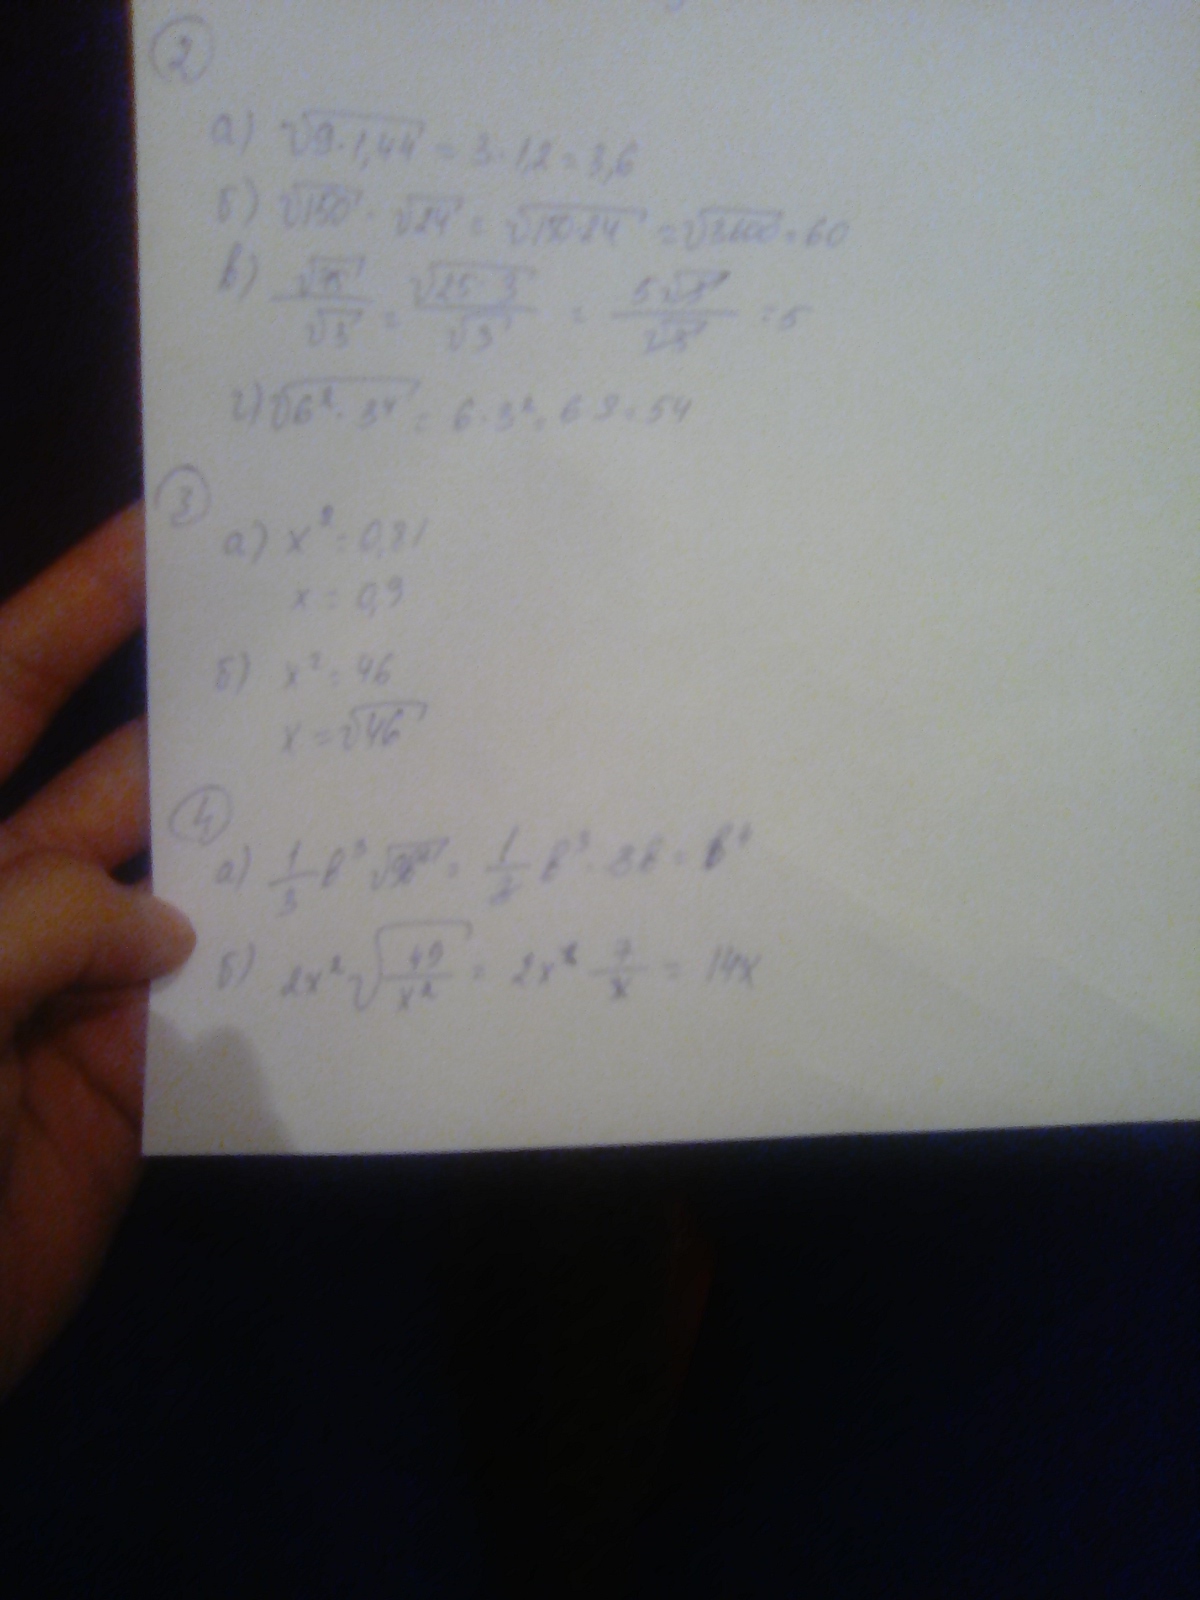 2
а) √9·1,44 = 3·1,2 = 3,6
б) √150 · √24 = √150·24 = √3600 = 60
в) √75/√3 = √25·3/√3 = 5√3/√3 = 5
г) √6²·3⁴ = 6·3² = 6·9 = 54
3
а) x² = 0,81
x = 0,9
б) x² = 46
x = √46
4
а) 1/3 b³ √9b² = 1/3 b³ · 3b = b⁴
б) 2x² √49/x² = 2x² 7/x = 14x